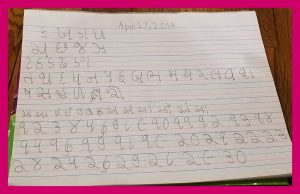 April 27, 2018
ક ખ ગ ઘ
ચ છ જ ઝ
ટ ઠ ડ ઢ ણ
ત થ દ ધ ન પ ફ બ ભ મ ય ર લ વ શ
ષ સ હ ળ ક્ષ જ્ઞ
અ આ ઇ ઈ ઉ ઊ એ ઐ ઓ ઔ અં અઃ
૧ ૨ ૩ ૪ ૫ ૬ ૭ ૮ ૯ ૧૦ ૧૧ ૧૨ ૧૩ ૧૪
૧૫ ૧૬ ૧૭ ૧૮ ૧૯ ૨૦ ૨૧ ૨૨ ૨૩
૨૪ ૨૫ ૨૬ ૨૭ ૨૮ ૨૯ ૩૦